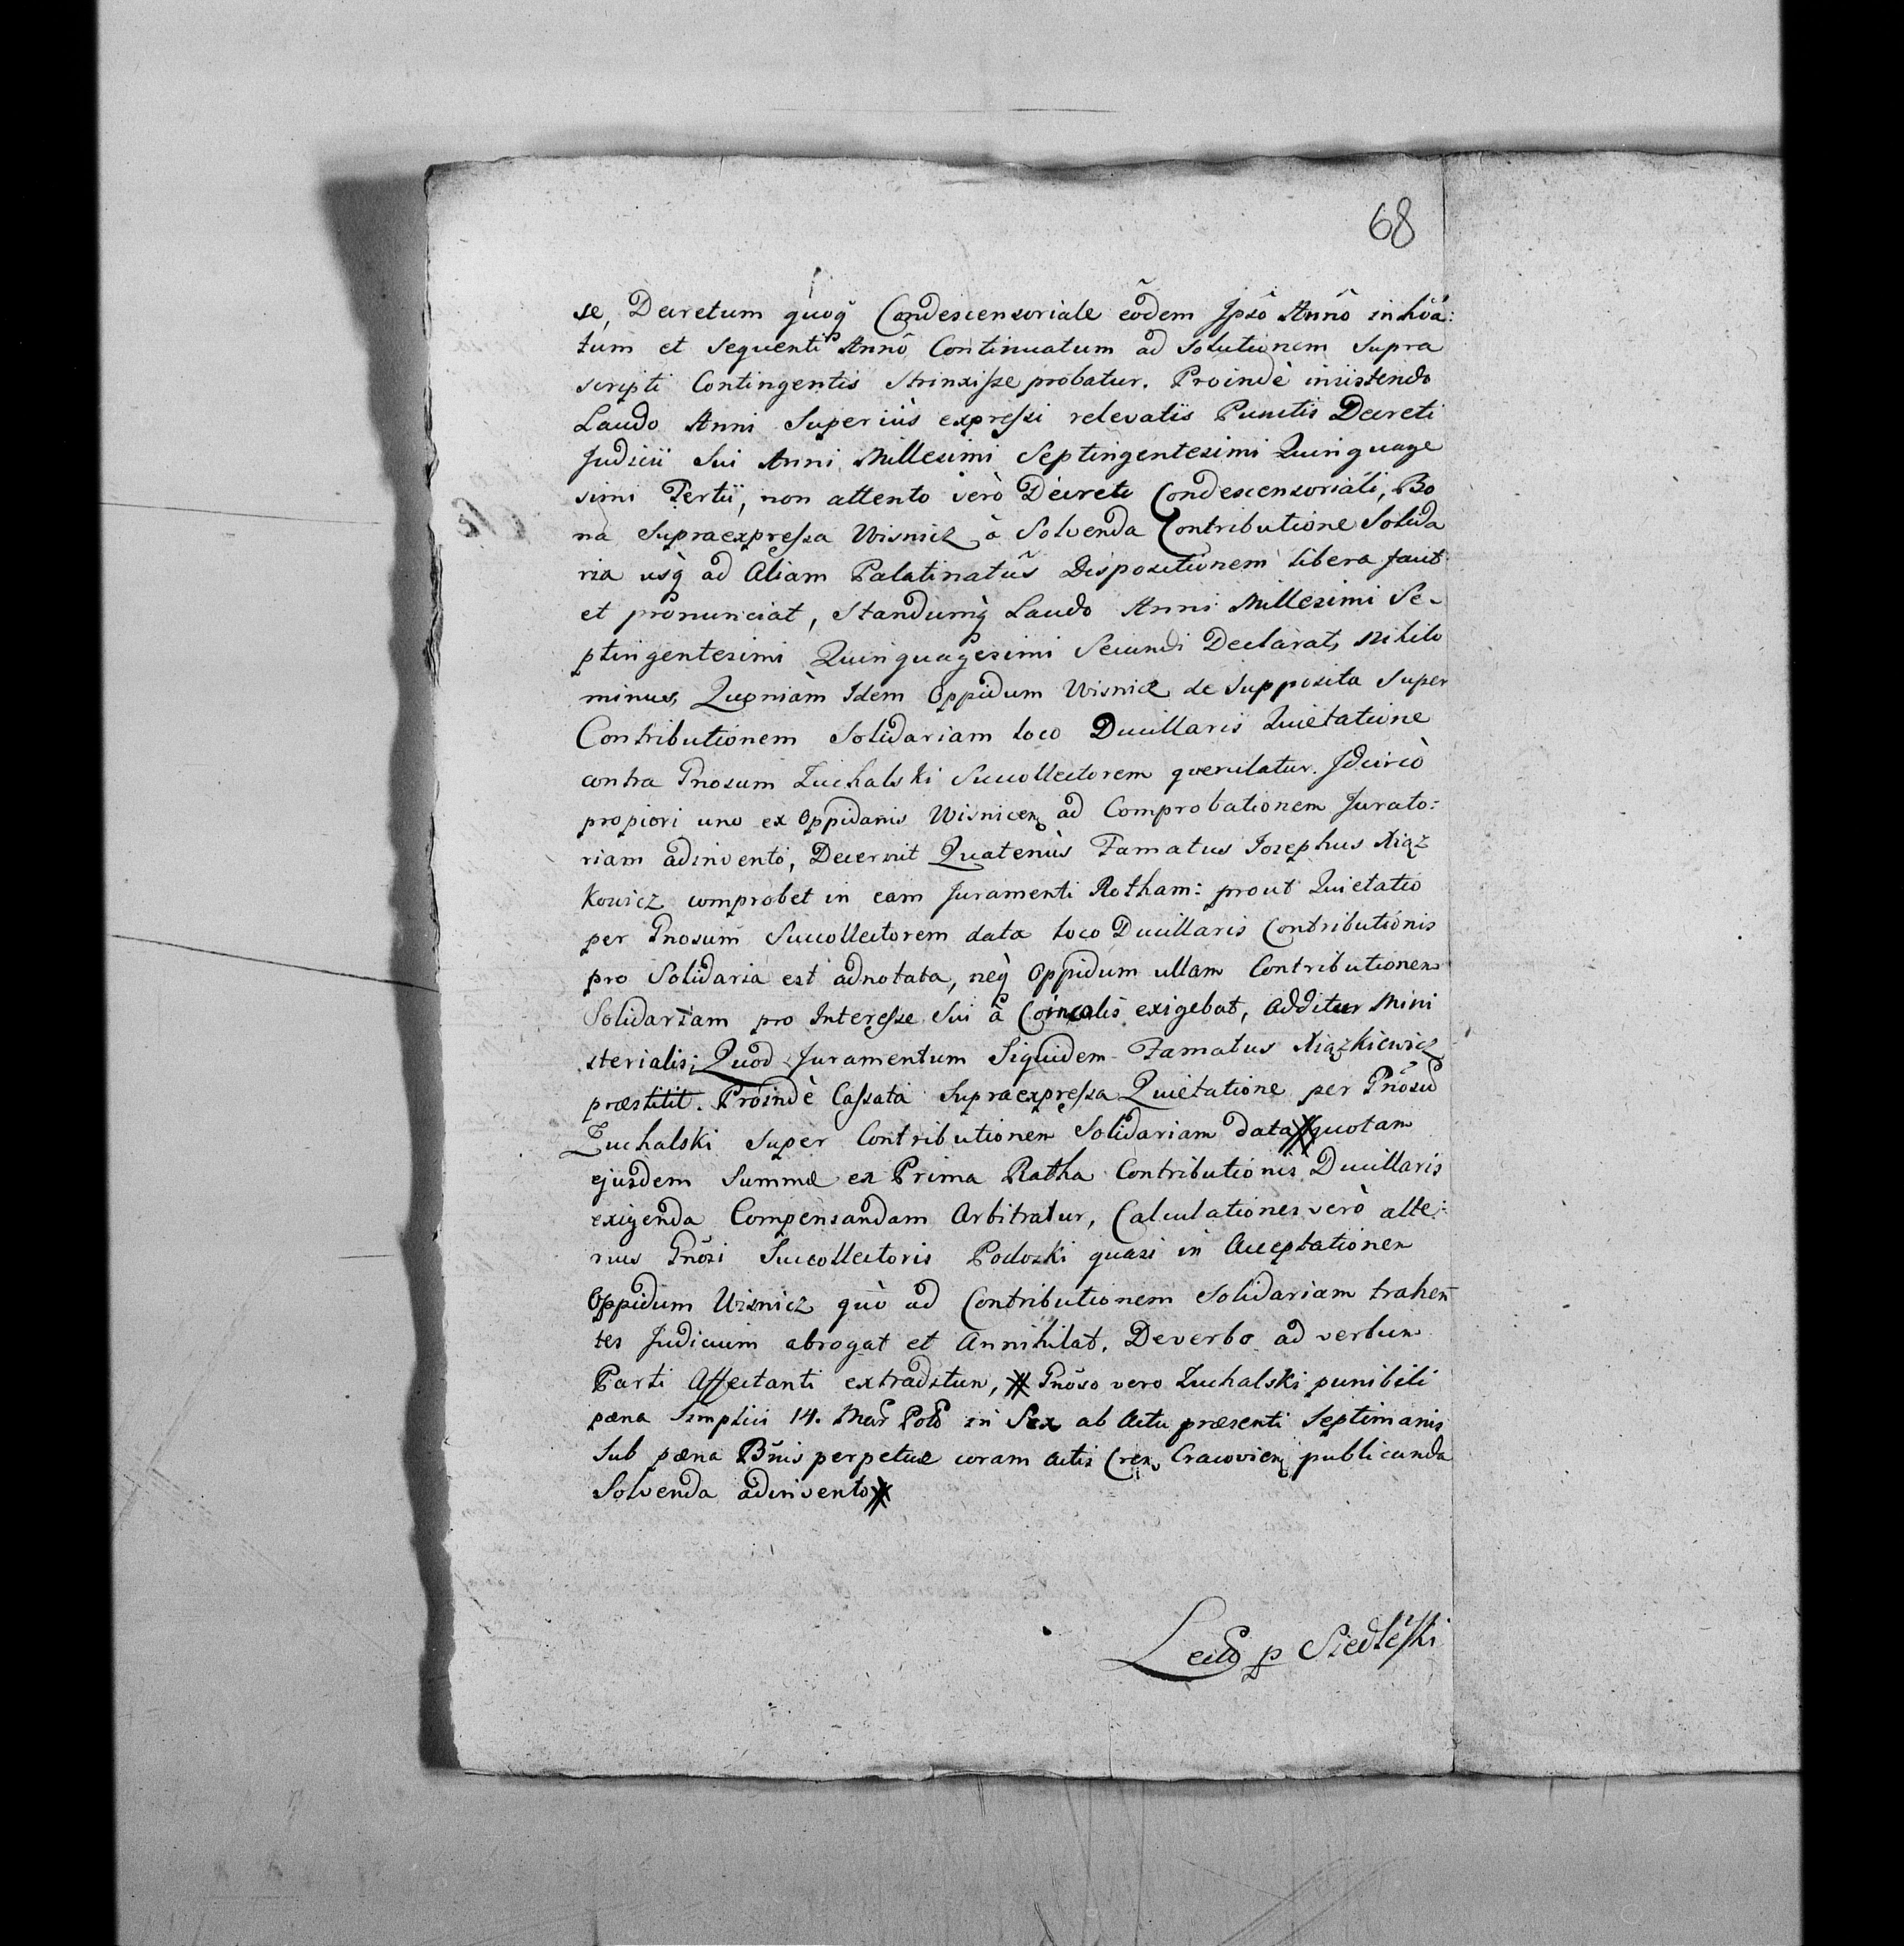 68
se, Decretum quoq̃ Condescensoriale eôdem Jpsô Annô inhôa:
tum et sequenti Annô Continuatum ad solutionem supra
scripti Contingentis strinxiſse probatur. Proindè insistendo
Laudo Anni Superiùs expreſsi relevatis Punctis Decreti
Judicii Sui Anni Millesimi Septingentesimi Quinquage
simi Tertii, non attento verò Decreto Condescensoriali, Bo
na Supraexpreſsa Wisnicz à Solvenda Contributione Solida
ria usq̃ ad Aliam Palatinatûs Dispositionem libera facit
et pronunciat, Standumq̃ Laudo Anni Millesimi Se-
ptingentesimi Quinquagesimi Secundi Declarat, nihilo
minus, Quoniàm Idem Oppidum Wisnicz de supposita super
Contributionem Solidariam loco Ducillaris Quietatione
contra Gnosum Zuchalski Succollectorem querulatur. Jdcircò
propiori uno ex Oppidanis Wisnicen ad Comprobationem Jurato:
riam adinvento, Decernit Quatenùs Famatus Josephus Xiąz
kowicz comprobet in eam Juramenti Rotham: prout Quietatio
per Gnosum Succollectorem data loco Ducillaris Contributionis
pro Solidaria est adnotata, neq̃ Oppidum ullam Contributionem
Solidariam pro Intereſse Sui à Coincolis exigebat, additur Mini
sterialis; Quod Juramentum Siquidem Famatus Xiązkiewicz
præstitit. Proindè Caſsata Supraexpreſsa Quietatione per Gnõsũ
Zuchalski super Contributionem Solidariam data quotam
ejusdem Summæ ex Prima Ratha Contributionis Ducillaris
exigenda Compensandam Arbitratur, Calculationes verò alte:
rius Gnõsi Succollectoris Podoski quasi in Acceptationem
Oppidum Wisnicz quò ad Contributionem Solidariam trahen̄
tes Judicium abrogat et Annihilat. De verbo ad verbum
Parti Affectanti extraditum, Gnõso vero Zuchalski punibili
pæna simplici 14. Mar Pol in Sex ab Actu præsenti Septimanis
Sub pæna Bñis perpetuæ coram Actis Cren Cracovien publicanda
Solvenda adinvento
Lect p Siedleſki